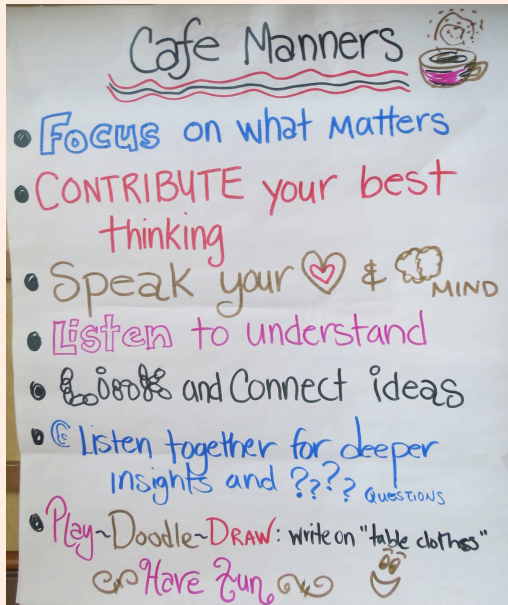 Cafe Manners
Focus on what Matters
CONTRIBUTE your best
thinking
Speak your & MIND
Listen to understand
Link and Connect ideas
Listen together for deeper
insights and ???? QUESTIONS
Play~Doodle~DRAW: write on "table clothes"
Have Fun